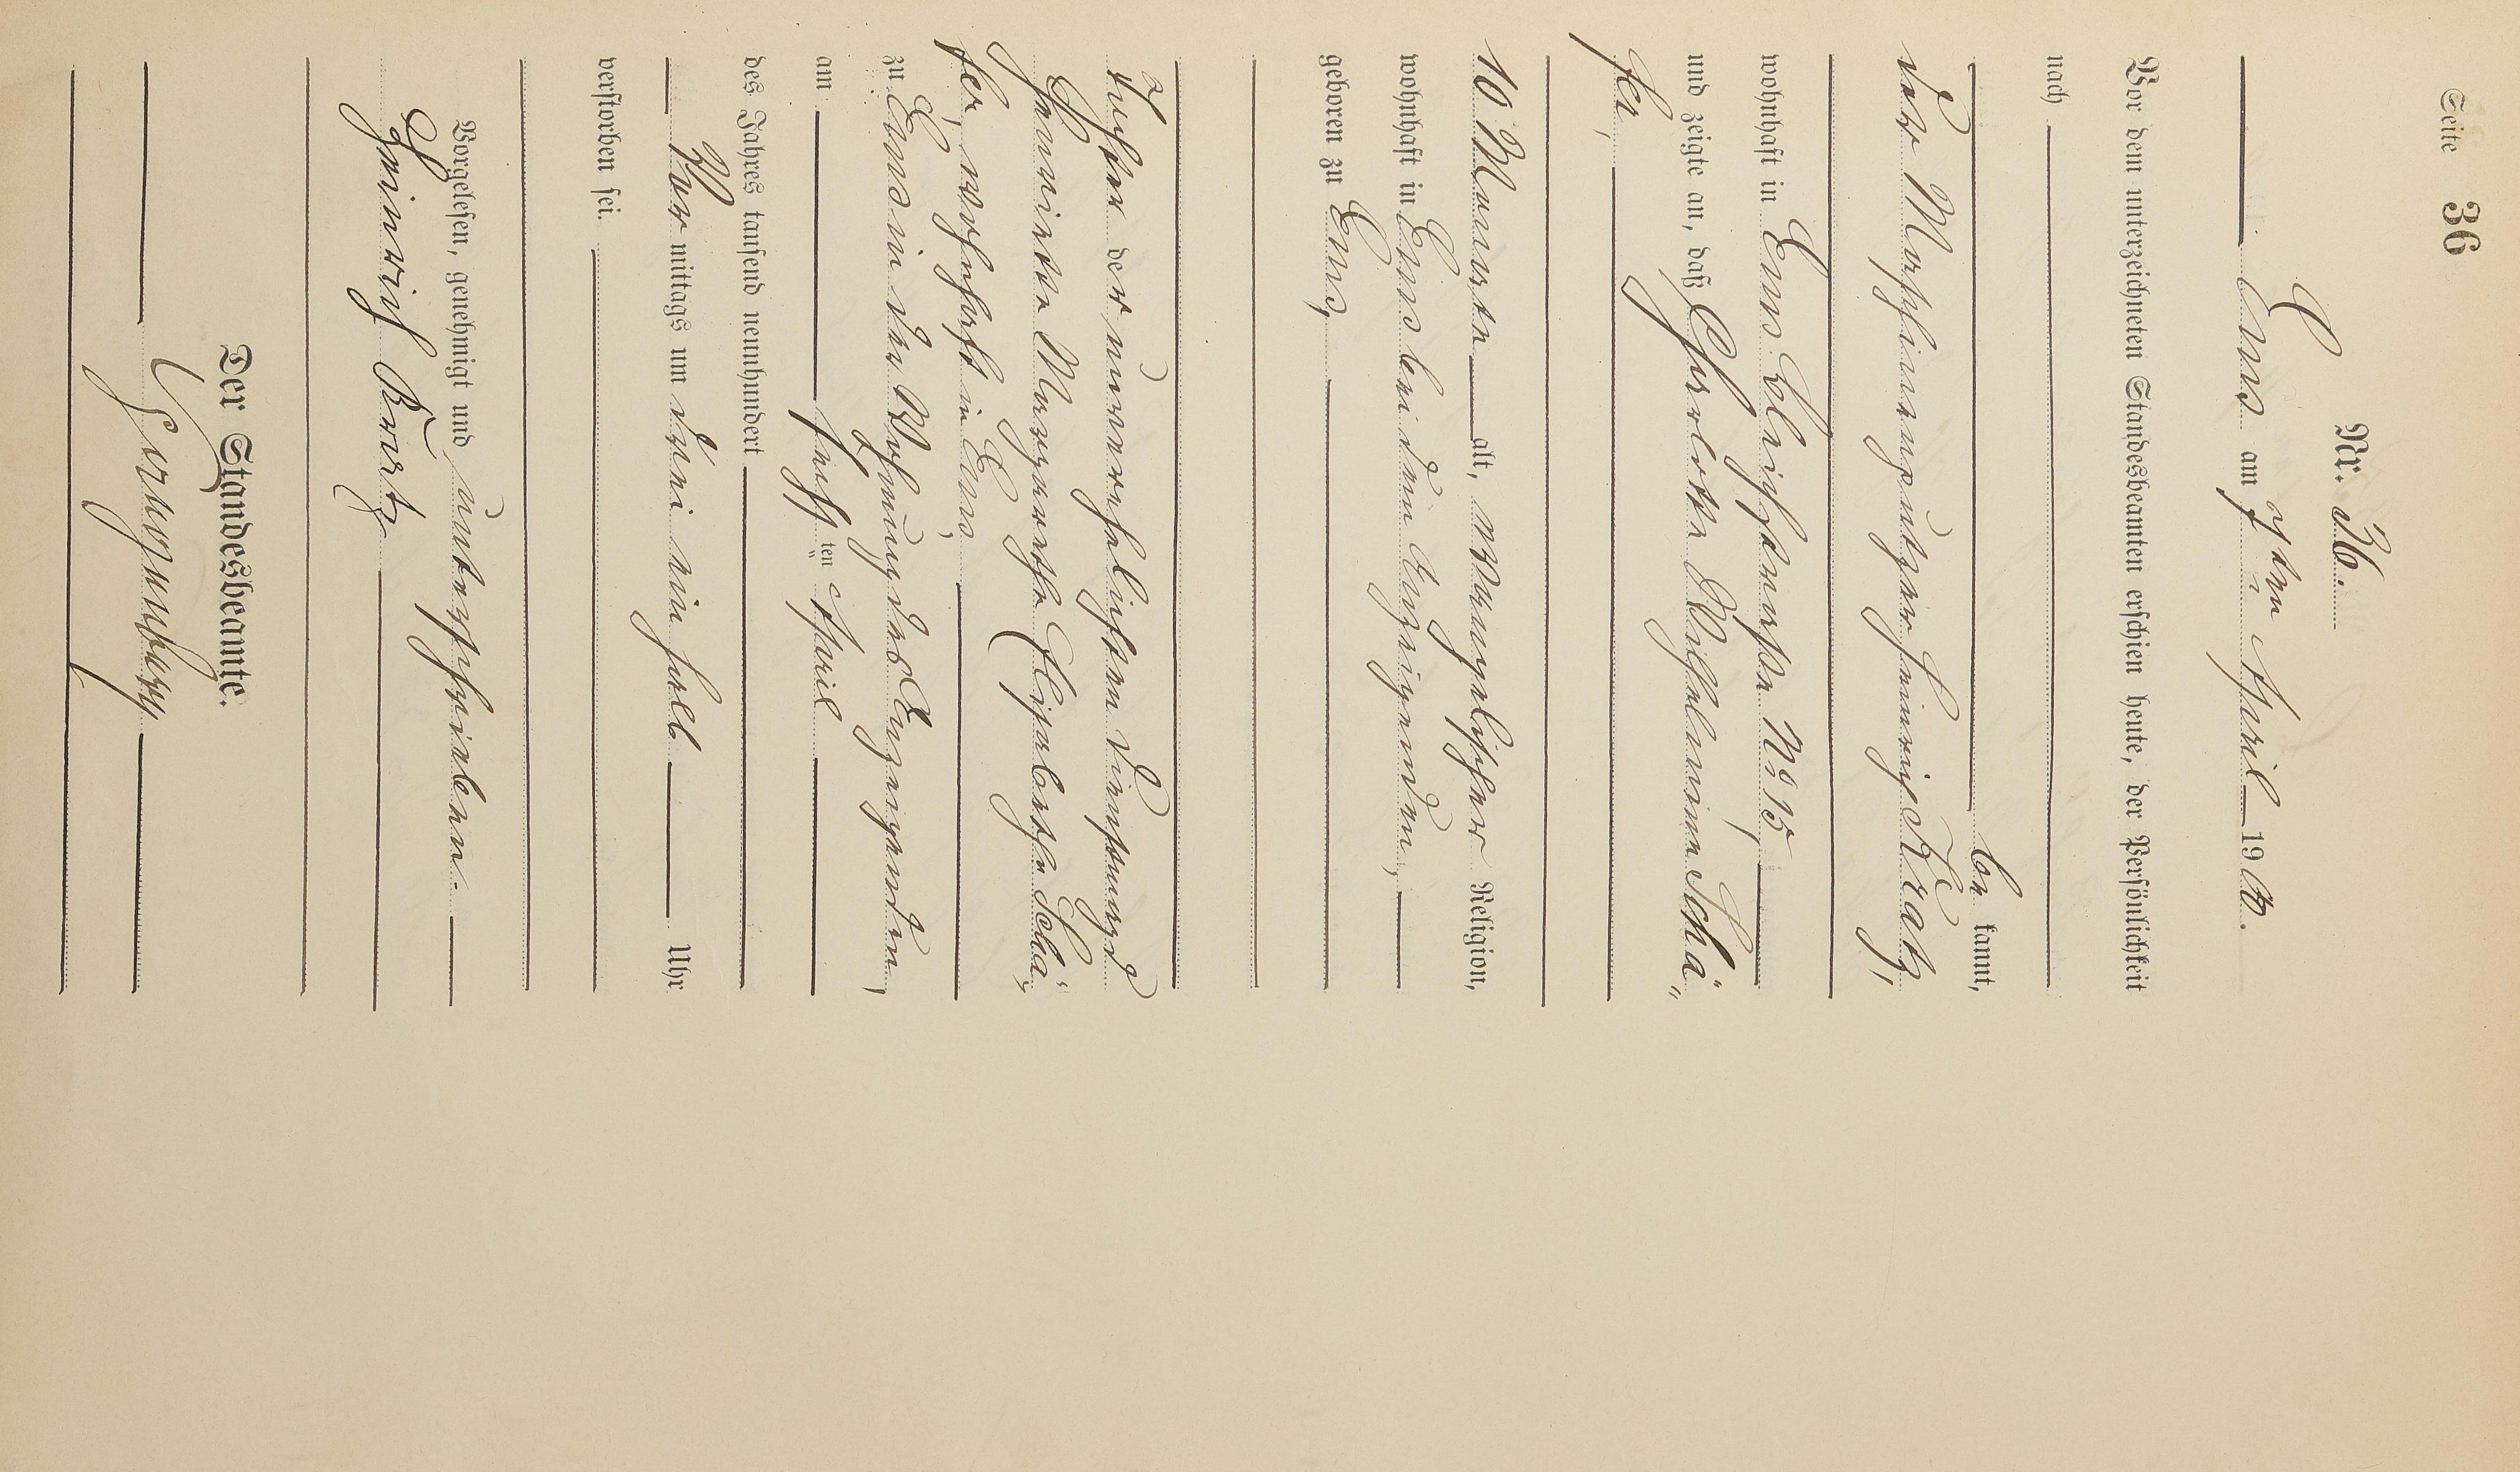 Seite 36
Nr. 36.
Ems am 7ten April 1900.
Vor dem unterzeichneten Standesbeamten erschien heute, der Persönlichkeit
nach
be kannt,
der Maschinenputzer Heinrich Kratz,
wohnhaft in Ems Bleichstraße No 15,
und zeigte an, daß Charlotte Wilhelmine Schä„
fer,
10 Monate alt, evangelischer Religion,
wohnhaft in Ems bei dem Anzeigenden,
geboren zu Ems,
Tochter der unverehelichten Dienstmagd
Henriette Margarethe Elisabethe Schä„
fer, wohnhaft in Ems
zu Ems in der Wohnung des Anzeigenden,
am sechsten April
des Jahres tausend neunhundert
Vor mittags um drei ein halb Uhr
verstorben sei.
Vorgelesen, genehmigt und unterschrieben.
Heinrich Kratz
Der Standesbeamte.